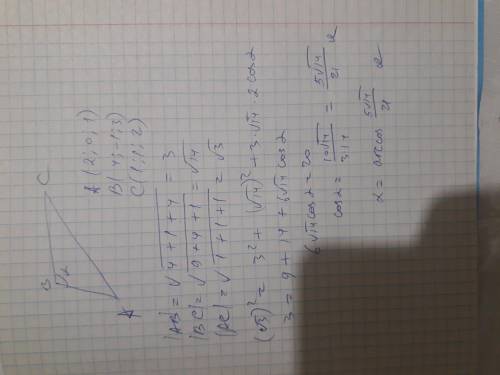 B C
α
A
A (2; 0; 1)
B (4; -1; 3)
C (1; 1; 2)
|AB| = √(4+1+4) = 3
|BC| = √(9+4+1) = √14
|AC| = √(1+1+1) = √3
(√3)² = 3² + (√14)² + 3·√14·2 cos α
3 = 9 + 14 + 6√14 cos α
6√14 cos α = 20
cos α = 10√14/3·14 = 5√14/21
α = arccos 5√14/21